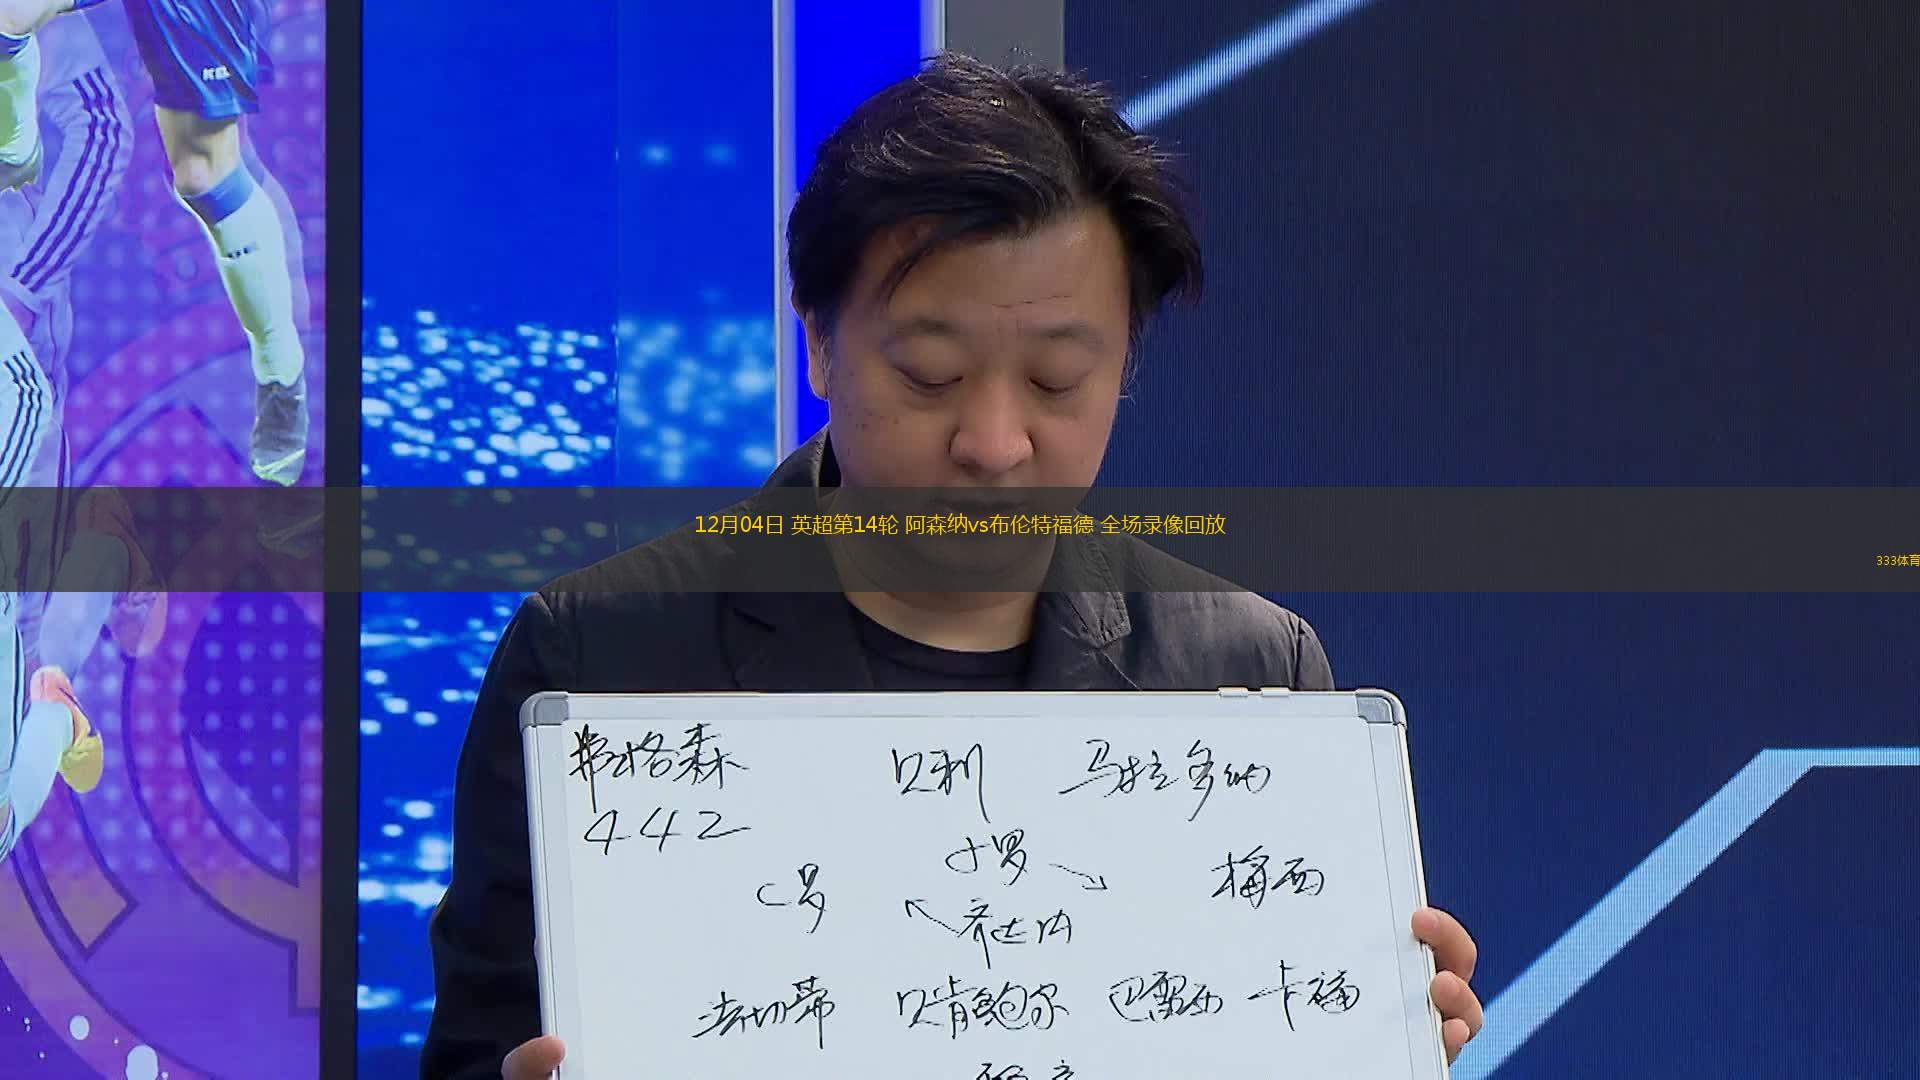 12月04日 英超第14轮 阿森纳vs布伦特福德 全场录像回放
333体育
弗格森 贝利 马拉多纳
442
小罗
C罗 梅西
齐达内
法切蒂 贝肯鲍尔 巴雷西 卡福